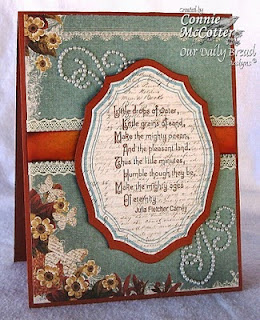 created by
Connie
McCotter
Our Daily Bread
designs
Little drops of water,
Little grains of sand,
Make the mighty ocean,
And the pleasant land.
Thus the little minutes,
Humble though they be,
Make the mighty ages
Of eternity
Julia Fletcher Carney